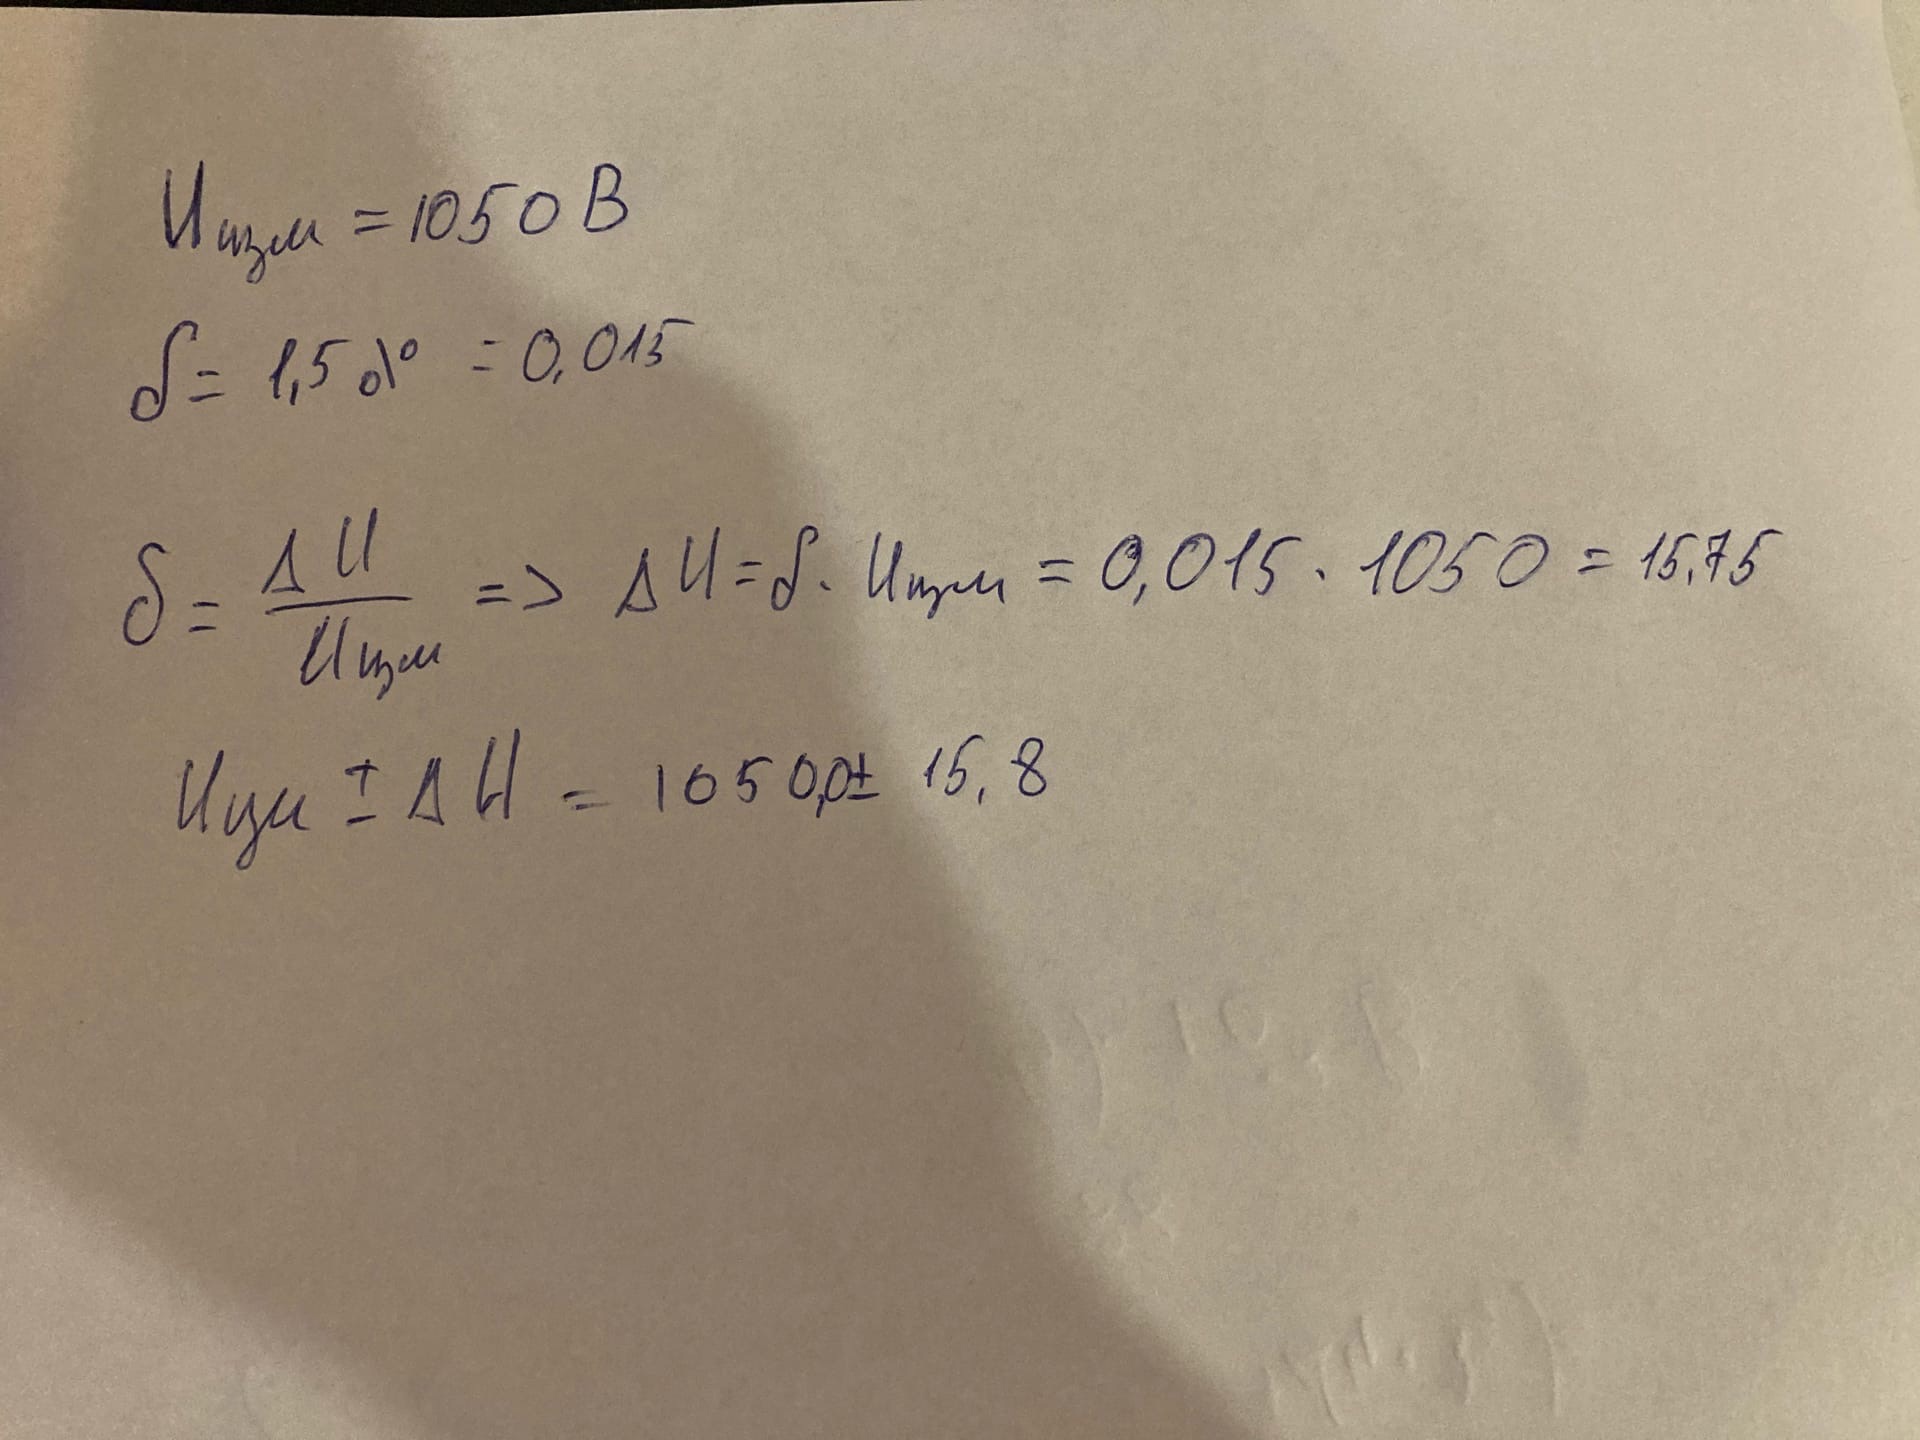 Uизм = 1050 В
δ = 1,5 % = 0,015
δ = ΔU / Uизм => ΔU = δ · Uизм = 0,015 · 1050 = 15,75
Uизм ± ΔU = 1050,0 ± 15,8